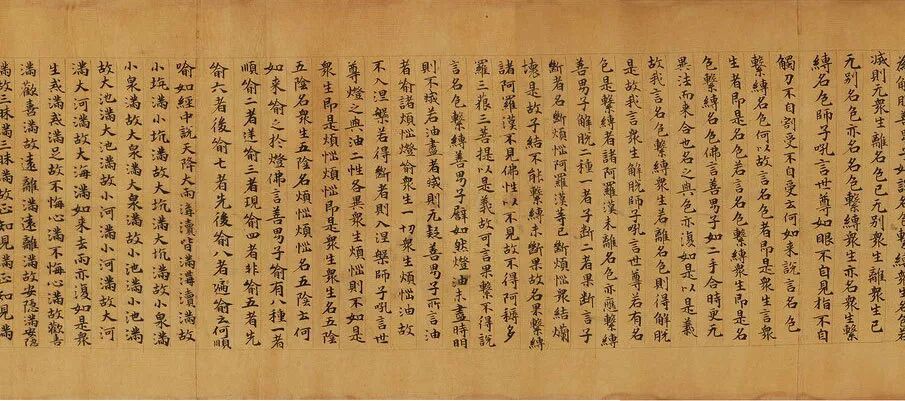 滅則无衆生離名色已无別衆生離衆生已
无別名色亦名名色繫縛衆生亦名衆生繫
縛名色師子吼言世尊如眼不自見指不自
觸刀不自割受不自受云何如來說言名色
繫縛名色何以故言名色者即是衆生言衆
生者即是名色若言名色繫縛衆生即是名
色繫縛名色佛言善男子如二手合時更无
異法而來合也名之與色亦復如是以是義
故我言名色繫縛衆生若離名色則得解脫
是故我言衆生解脫師子吼言世尊若有名
色是繫縛者諸阿羅漢未離名色亦應繫縛
善男子解脫二種一者子斷二者果斷言子
斷者名斷煩惱阿羅漢等已斷煩惱衆結爛
壞是故子結不能繫縛未斷果故名果繫縛
諸阿羅漢不見佛性以不見故不得阿耨多
羅三藐三菩提以是義故可言果繫不得說
言名色繫縛善男子譬如燃燈油未盡時明
則不滅若油盡者滅則无疑善男子所言油
者喻諸煩惱燈喻衆生一切衆生煩惱油故
不入涅槃若得斷者則入涅槃師子吼言世
尊燈之與油二性各異衆生煩惱則不如是
衆生即是煩惱煩惱即是衆生衆生名五陰
五陰名衆生五陰名煩惱煩惱名五陰云何
如來喻之於燈佛言善男子喻有八種一者
順喻二者逆喻三者現喻四者非喻五者先
喻六者後喻七者先後喻八者遍喻云何順
喻如經中說天降大雨溝瀆皆滿溝瀆滿故
小坑滿小坑滿故大坑滿大坑滿故小泉滿
小泉滿故大泉滿大泉滿故小池滿小池滿
故大池滿大池滿故小河滿小河滿故大河
滿大河滿故大海滿如來法雨亦復如是衆
生戒滿戒滿足故不悔心滿不悔心滿故歡喜
滿歡喜滿故遠離滿遠離滿故安隱滿安隱
滿故三昧滿三昧滿故正知見滿正知見滿